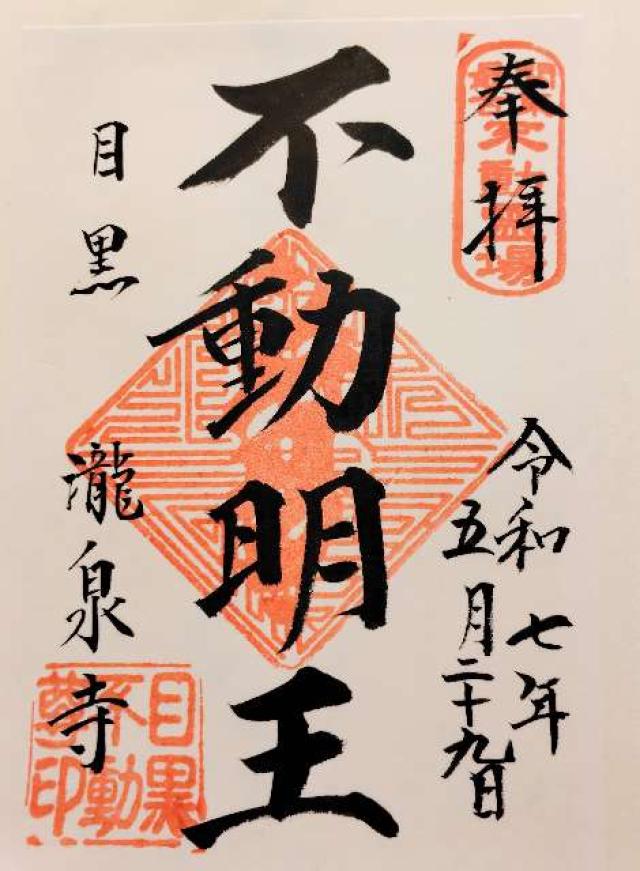 奉拝
不動霊場
令和七年
五月二十九日
不動明王
目黒 瀧泉寺
目黒
不動
尊印